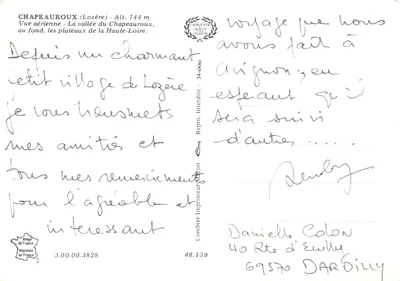 CHAPEAUROUX (Lozère) - Alt. 744 m
Vue aérienne - La vallée du Chapeauroux,
au fond, les plateaux de la Haute-Loire.
Depuis un charmant
petit village de Lozère
je vous transmets
mes amitiés et
tous mes remerciements
pour l'agréable et
intéressant
voyage que nous
avons fait à
Avignon, en
espérant qu'il
sera suivi
d'autres .....
Danielle COLON
40 Rte d'Ecully
69570 DARDILLY
Combier Imprimeur Mâcon
Repro. Interdite
34-000
3.00.00.3828
48.139